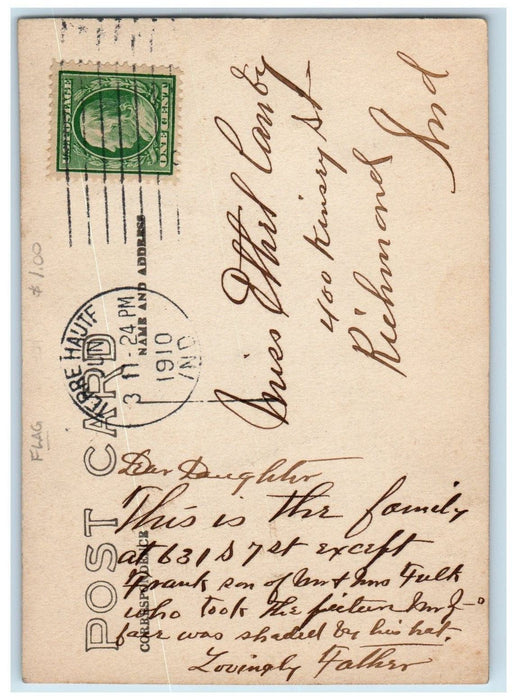 POST CARD
CORRESPONDENCE
NAME AND ADDRESS
ONE CENT
TERRE HAUTE
JUN
3
11 - 24 PM
1910
IND
Miss Ethel Canby
400 Kinsey St
Richmond
Ind
Dear Daughter
This is the family
at 631 S 7 st except
Frank son of Mr & Mrs Fulk
who took the picture Mr
face was shaded by his hat.
Lovingly Father
FLAG
$1.00